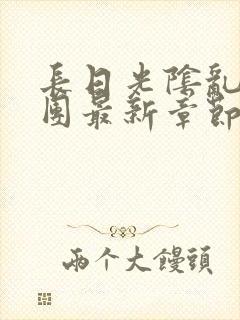 長日光陰亂
團最新章節
兩个大饅頭